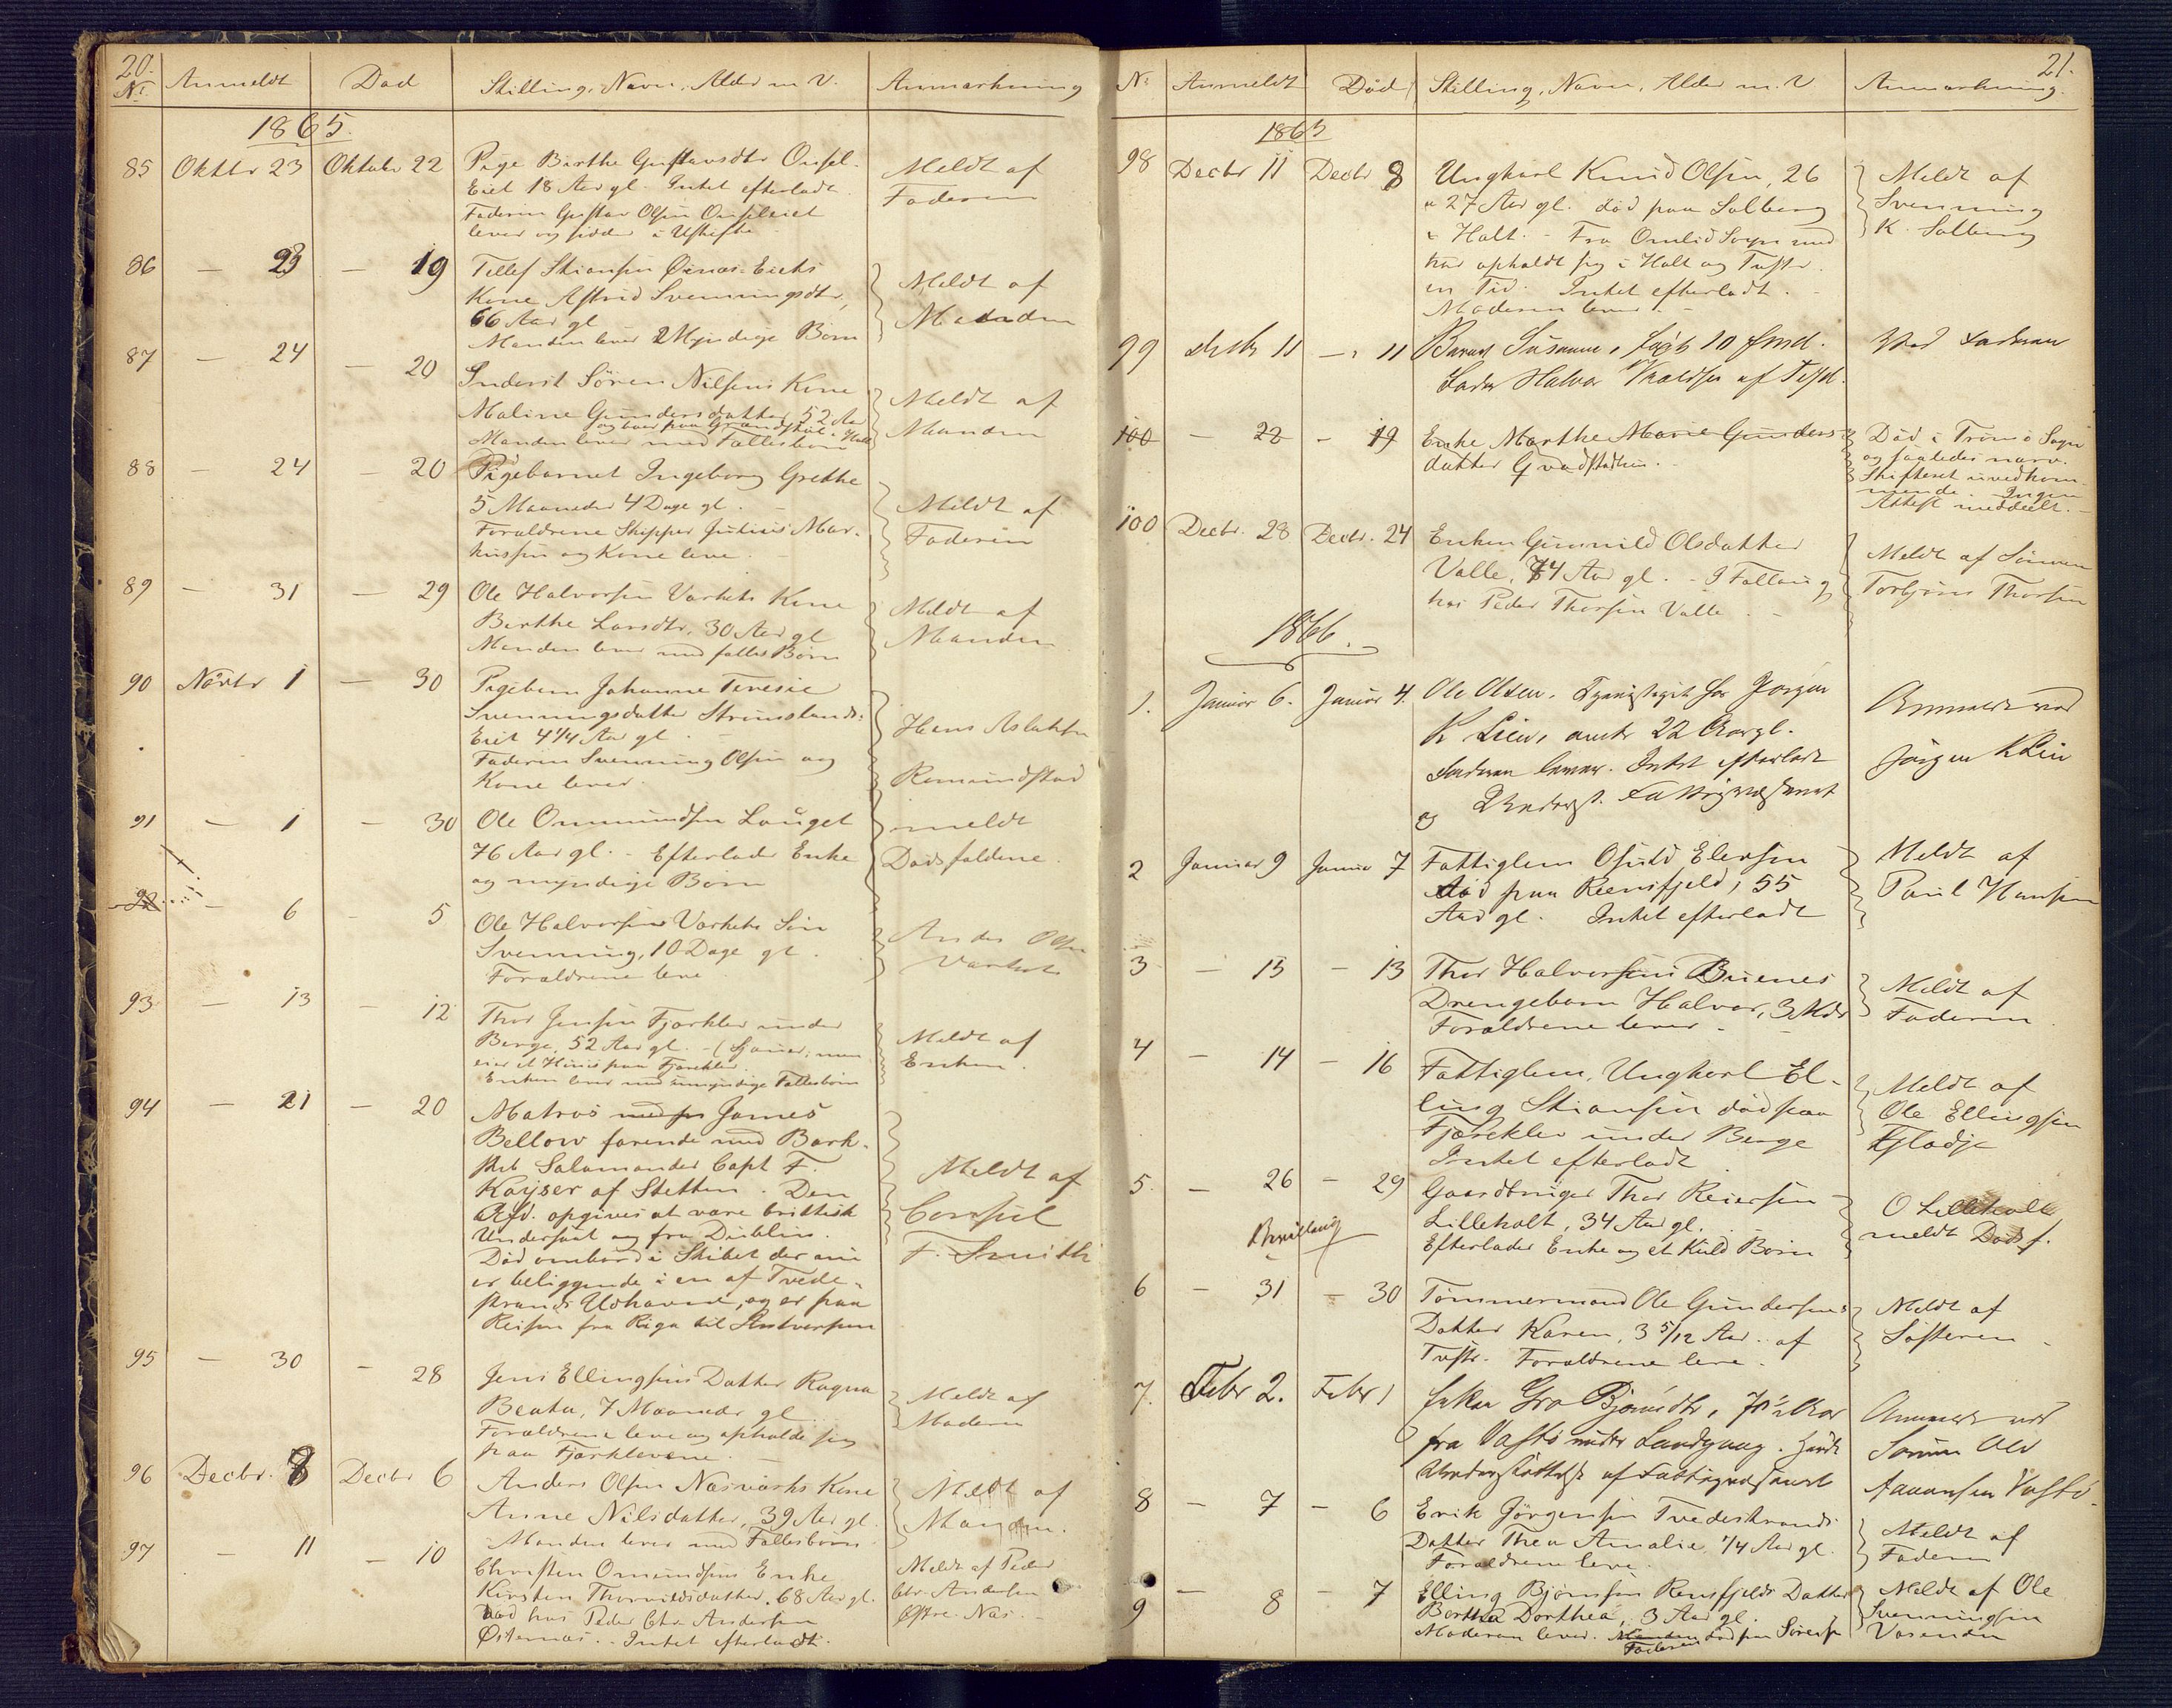 20.
No. Anmeldt Død Stilling, Navn, Alder m. V. Anmærkning
1865.
85 Oktbr 23 Oktober 22 Pige Birthe Gustavsdtr Onsøl- Meldt af
Eiet 18 Aar gl. Intet efterladt Faderen
Faderen Gustav Olsen
lever og sidder i Uskifte
86 — 23 — 19 Tellef Skiansen Øinæs-Eiets Meldt af
Kone Astrid Svenningsdtr, Manden
66 Aar gl
Manden lever 2 Myndige Børn
87 — 24 — 20 Inderst Søren Nilsens Kone Meldt af
Maline Gundersdatter, 52 Aar Manden
og boer paa i Holt
Manden lever med Fællesbørn
88 — 24 — 20 Pigebarnet Ingeborg Grethe Meldt af
5 Maaneder 4 Dage gl. Faderen
Forældrene Skipper Julius Mar-
kussen og Kone leve.
89 — 31 — 29 Ole Halvorsen Varhets Kone Meldt af
Berthe Larsdtr, 30 Aar gl Manden
Manden lever med fælles Børn
90 Novbr 1 — 30 Pigebarn Johanne Teresie Hans Aslaksen
Svenningsdatter Strømslands- Romundstad
Eiet 4 1/4 Aar gl.
Faderen Svenning Olsen og
Kone lever.
91 — 1 — 30 Ole Ommundsen Lauget meldt
76 Aar gl. - Efterlader Enke Dødsfaldene.
og myndige Børn
92 — 6 — 5 Ole Halvorsens Varhets Søn Anders Olsen
Svenning, 10 Dage gl. Varhet
Forældrene leve
93 — 13 — 12 Thor Jensen Fjærklev under Meldt af
Berge, 52 Aar gl. - Enken.
eier et Huus paa Fjærklev
Enken lever med umyndige Fællesbørn
94 — 21 — 20 Matros James Meldt af
Bellow farende med Bark- Consul
skib Salamander Capt F. F. Smith
Kayser af Stettin. Den
Afd. opgives at være brittisk
Undersaat og fra Dublin.
Død ombord i Skibet der nu
er beliggende i en af Tvede-
strands Udhavne, og er paa
Reisen fra Riga til Antwerpen
95 — 30 — 28 Jens Ellingsens Datter Ragna Meldt af
Beata, 7 Maaneder gl. Moderen
Forældrene leve og opholde sig
paa Fjærklevene. —
96 Decbr. 8 Decbr 6 Anders Olsen Næsværks Kone Meldt af
Anne Nilsdatter, 39 Aar gl. Manden.
Manden lever med Fællesbørn
97 — 11 — 10 Christen Omundsens Enke Meldt af Peder
Kirsten Thorvildsdatter, 68 Aar gl. Chr. Andersen
Død hos Peder Chr. Andersen Østre Næs.
Østernæs. - Intet efterladt.
21.
No. Anmeldt Død Stilling, Navn, Alder m. V Anmærkning.
1865
98 Decbr 11 Decbr 8 Ungkarl Knud Olsen, 26 Meldt af
a 27 Aar gl. død paa Solberg Svenning
i Holt. - Fra Omlid Sogn med K. Solberg
har opholdt sig i Holt og Tvstr.
en Tid. Intet efterladt.
Moderen lever. -
99 Decbr 11 — 11 Barnet Susanne, født 10 Ved Faderen
Fader Halvor af
100 — 22 — 19 Enke Marthe Marie Gunders- Død i Tromø Sogn
datter og saaledes nærv.
Skifteret uvedkom-
mende. Ingen
Attest meddeelt. -
100 Decbr. 28 Decbr. 24 Enken Gunnild Olsdatter Meldt af Sønnen
Valle, 84 Aar gl. - I Følling Torbjørn Thorsen
hos Peder Thorsen Valle. -
1866.
1. Januar 6. Januar 4. Ole Olsen. hos Jørgen Anmeldt ved
K Lien, 22 Aar gl. Jørgen K Lien
Faderen lever. Intet efterladt
og Fattigvæsenet
2 Januar 9 Januar 7 Fattiglem Osuld Elevsen Meldt af
død paa Reensfjeld, 55 Paul Hansen
Aar gl. Intet efterladt
3 — 15 — 13 Thor Halvorsens Buenes Meldt af
Drengebarn Halvor, 3 Mdr Faderen
Forældrene lever -
4 — 14 — 16 Fattiglem, Ungkarl El- Meldt af
ling Skiansen død paa Ole Ellingsen
Fjæreklev under Berge
Intet efterladt
5 — 26 — 29 Gaardbruger Thor Reiersen O Lilleholt
Lilleholt, 34 Aar gl. meldt Dødsf.
Efterlader Enke og et Kuld Børn
6 — 31 — 30 Tømmermand Ole Gundersens Meldt af
Datter Karen, 3 5/12 Aar. af Søsteren
Tvstr. Forældrene leve.
7. Febr 2. Febr 1 Enken Gro Bjørnsdtr, Anmeldt ved
fra Vasto under Landgang. Havde Sønnen Ole
Understøttelse af Fattigvæsenet Aanonsen Vasto.
8 — 7 — 6 Erik Jørgensen Tvedestrands Meldt af
Datter Thea Amalie 1/4 Aar gl. Faderen
Forældrene leve.
9 — 8 — 7 Elling Bjørnsen Rensfjelds Datter Meldt af Ole
Berthea Dorthea, 3 Aar gl. Svenningsen
Moderen lever. Manden død paa Vasenden
Faderen